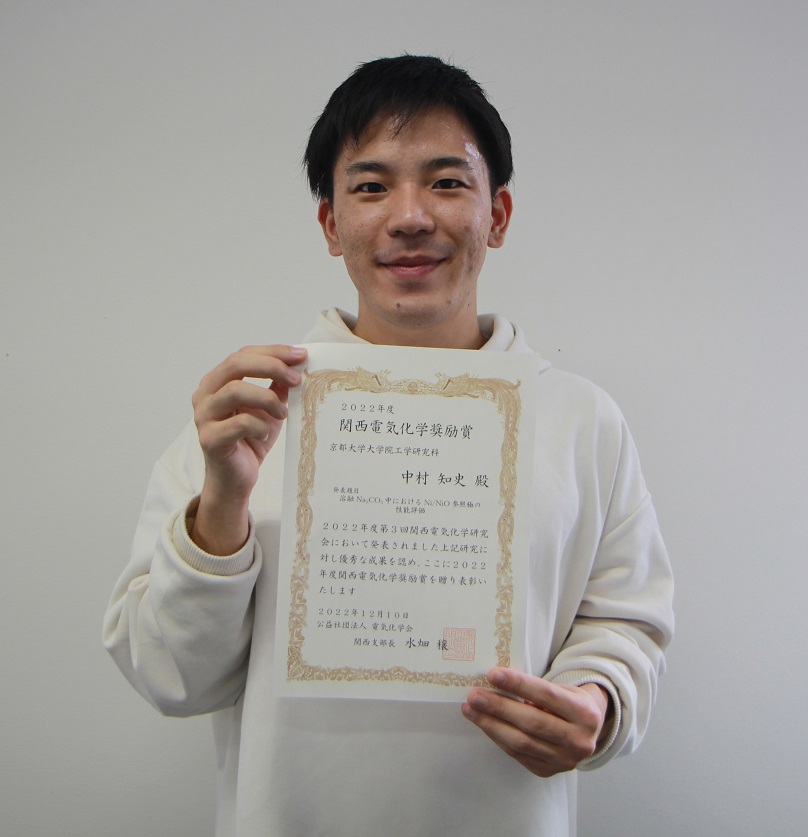 2022年度
関西電気化学奨励賞
京都大学大学院工学研究科
中村 知史 殿
発表題目
溶融 Na₂CO₃ 中における Ni/NiO 参照極の
性能評価
2022年度第3回関西電気化学研究
会において発表されました上記研究に
対し優秀な成果を認め、ここに2022
年度関西電気化学奨励賞を贈り表彰い
たします
2022年12月10日
公益社団法人 電気化学会
関西支部長 水畑 穣